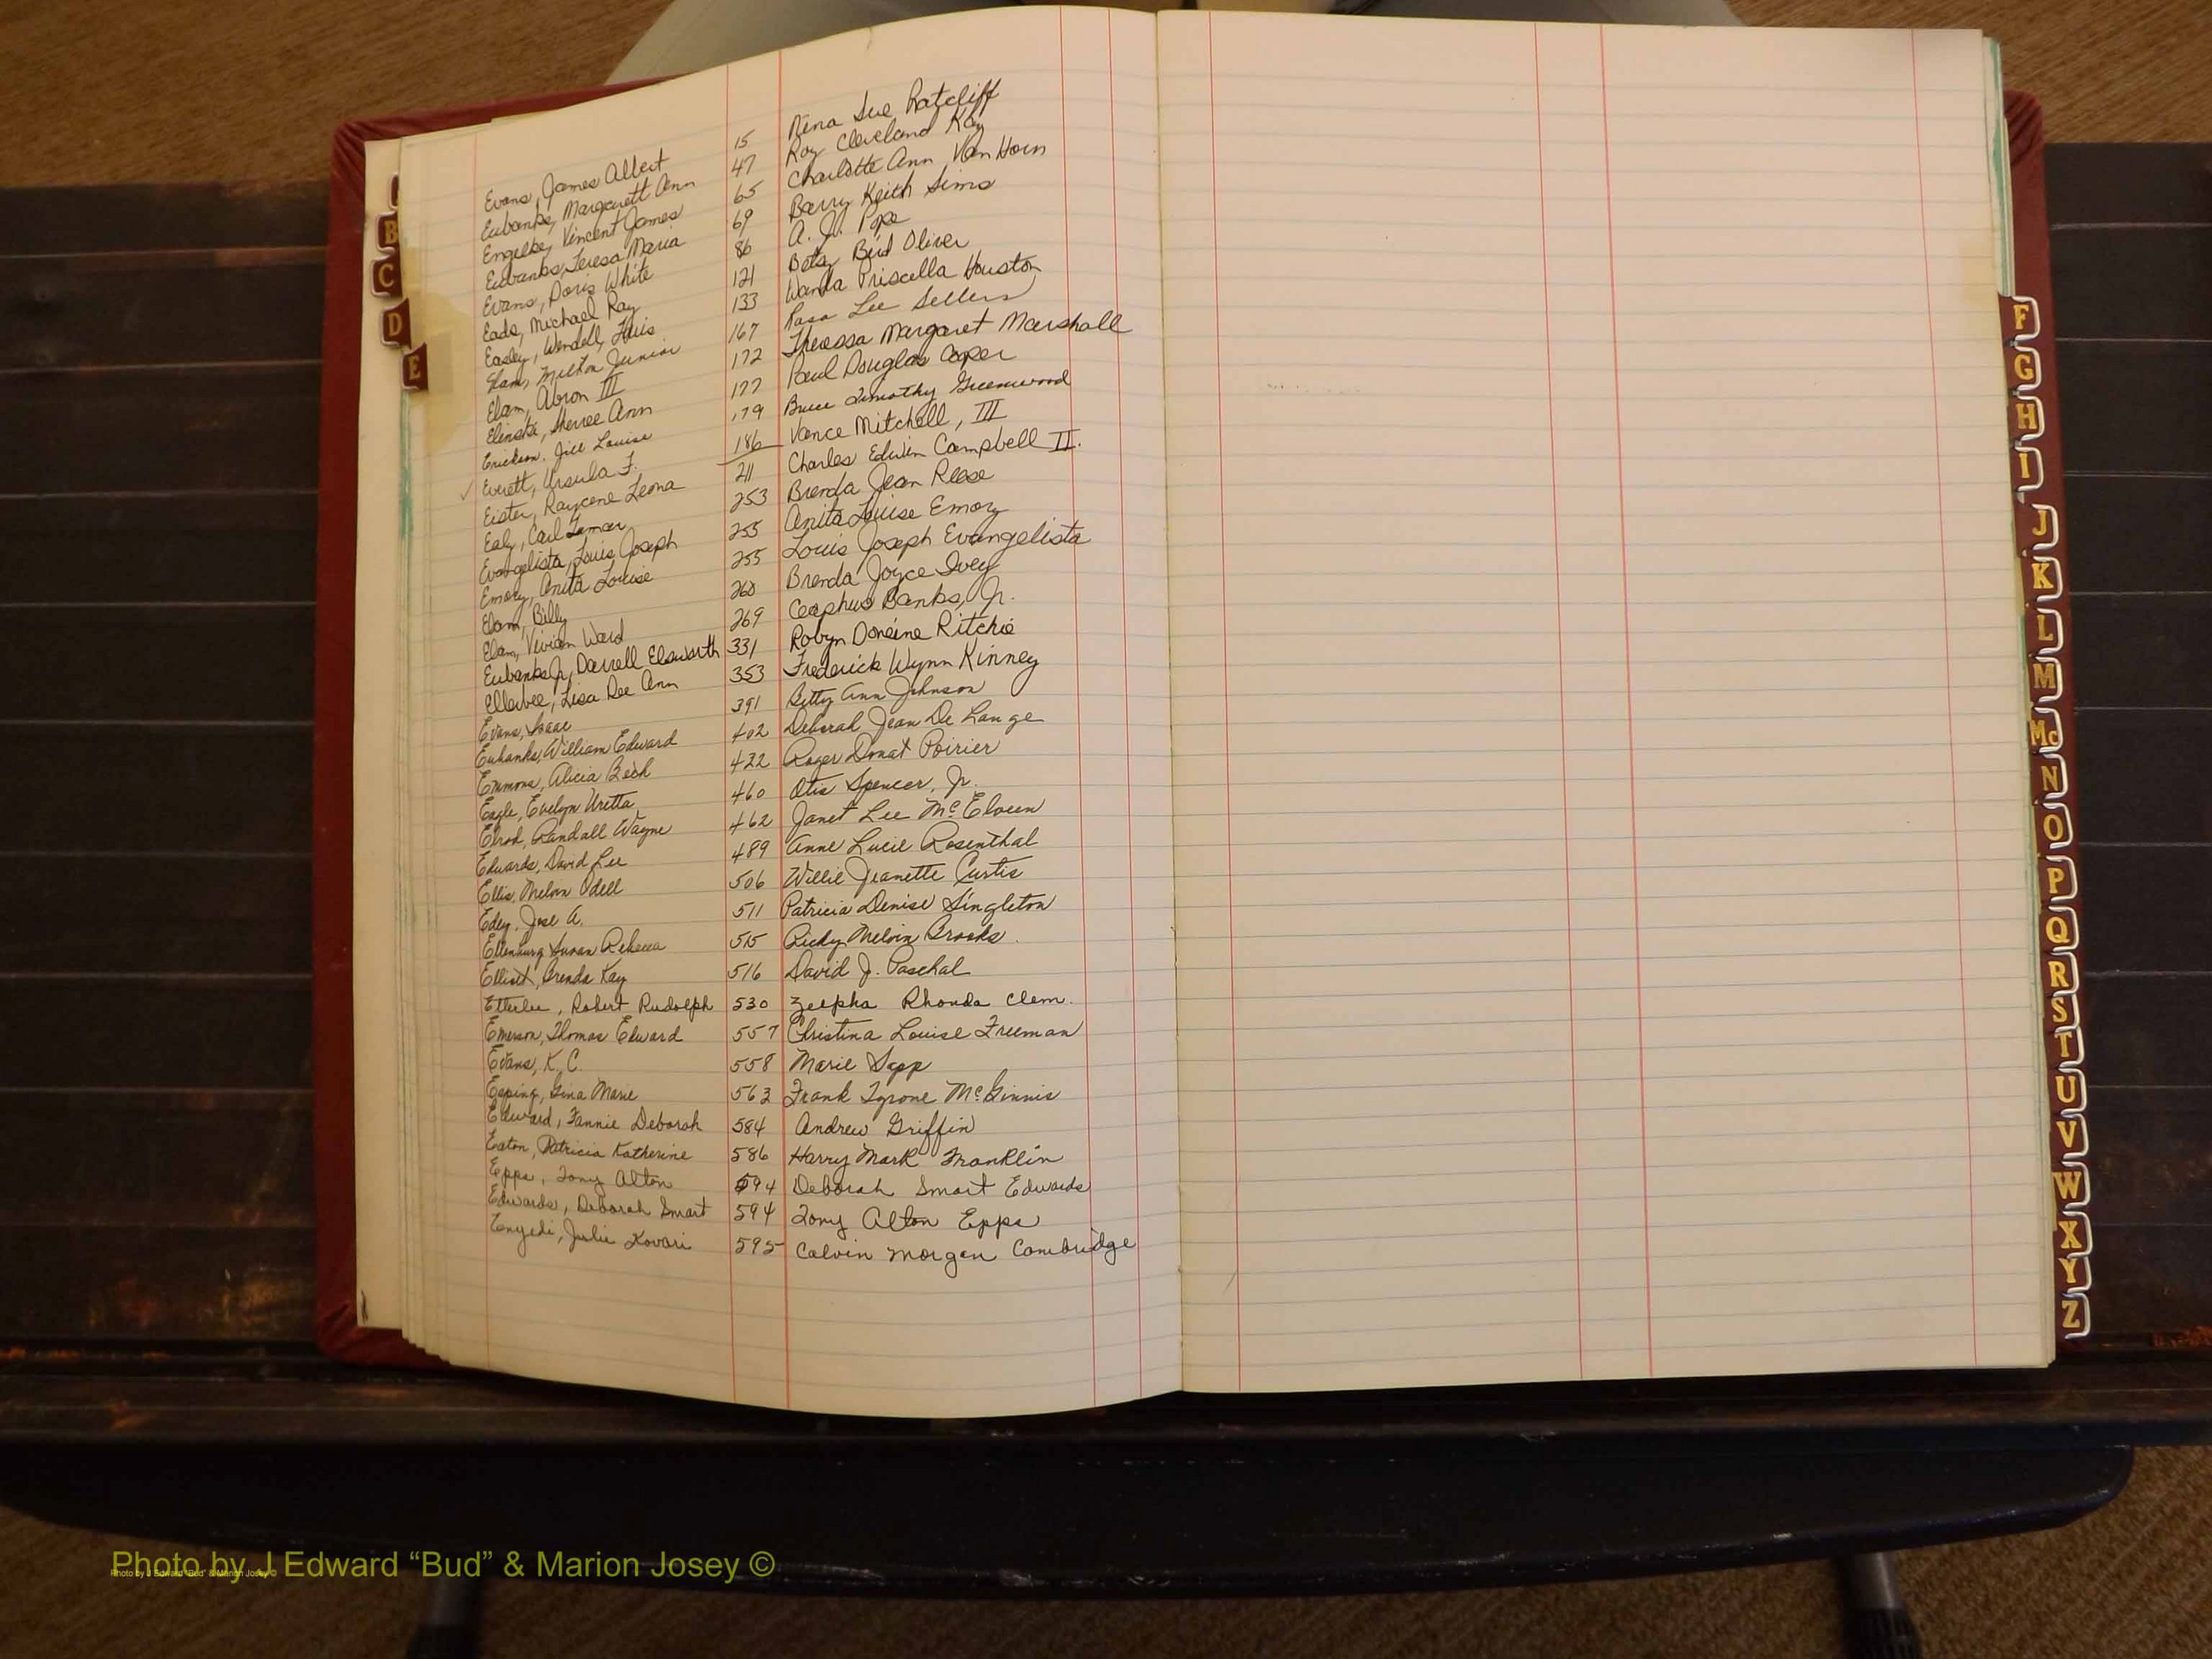 Evans, James Albert 15 Nena Sue Ratcliff
Eubanks, Margarett Ann 47 Roy Cleveland Kay
Engelke, Vincent James 65 Charlotte Ann Van Horn
Eubanks, Teresa Maria 69 Barry Keith Sims
Evans, Doris White 86 A. J. Pope
Eads, Michael Ray 121 Betsy Bird Oliver
Easley, Wendell Luis 133 Wanda Priscilla Houston
Elam, Milton Junior 167 Rosa Lee Sellers
Elam, Abron III 172 Theressa Margaret Marshall
Elinski, Sherree Ann 177 Paul Douglas Coper
Erickson, Jill Louise 179 Bruce Timothy Greenwood
✓ Everett, Ursula F. 186 Vance Mitchell, III
Eister, Raycene Leona 211 Charles Edwin Campbell II.
Ealy, Carl Lamar 253 Brenda Jean Reese
Evangelista, Louis Joseph 255 Anita Louise Emory
Emory, Anita Louise 255 Louis Joseph Evangelista
Elam, Billy 260 Brenda Joyce Ivey
Elam, Vivian Ward 269 Ceaphus Banks, Jr.
Eubanks Jr, Darrell Elsworth 331 Robyn Doreine Ritchie
Ellerbee, Lisa Dee Ann 353 Frederick Wynn Kinney
Evans, Isaac 391 Betty Ann Johnson
Eubanks, William Edward 402 Deborah Jean De Lange
Emmons, Alicia Beck 422 Roger Donat Poirier
Eagle, Evelyn Uretta 460 Otis Spencer, Jr.
Elrod, Randall Wayne 462 Janet Lee McElveen
Edwards, David Lee 489 Anne Lucie Rosenthal
Ellis, Melvin Odell 506 Willie Jeanette Curtis
Edey, Jose A. 511 Patricia Denise Singleton
Ellenburg Susan Rebecca 515 Ricky Melvin Brooks.
Elliott, Brenda Kay 516 David J. Paschal
Etterlee, Robert Rudolph 530 Zeepha Rhonda Clem.
Emerson, Thomas Edward 557 Christina Louise Freeman
Evans, K. C. 558 Marie Sapp
Epping, Gina Marie 563 Frank Tyrone McGinnis
Edward, Fannie Deborah 584 Andrew Griffin
Eaton, Patricia Katherine 586 Harry Mark Franklin
Epps, Tony Alton 594 Deborah Smart Edwards
Edwards, Deborah Smart 594 Tony Alton Epps
Enyedi, Julie Kovari 595 Calvin Morgan Cambridge
B
C
D
E
F
G
H
I
J
K
L
M
Mc
N
O
P
Q
R
S
T
U
V
W
X
Y
Z
Photo by J Edward “Bud” & Marion Josey ©
Photo by J Edward “Bud” & Marion Josey ©